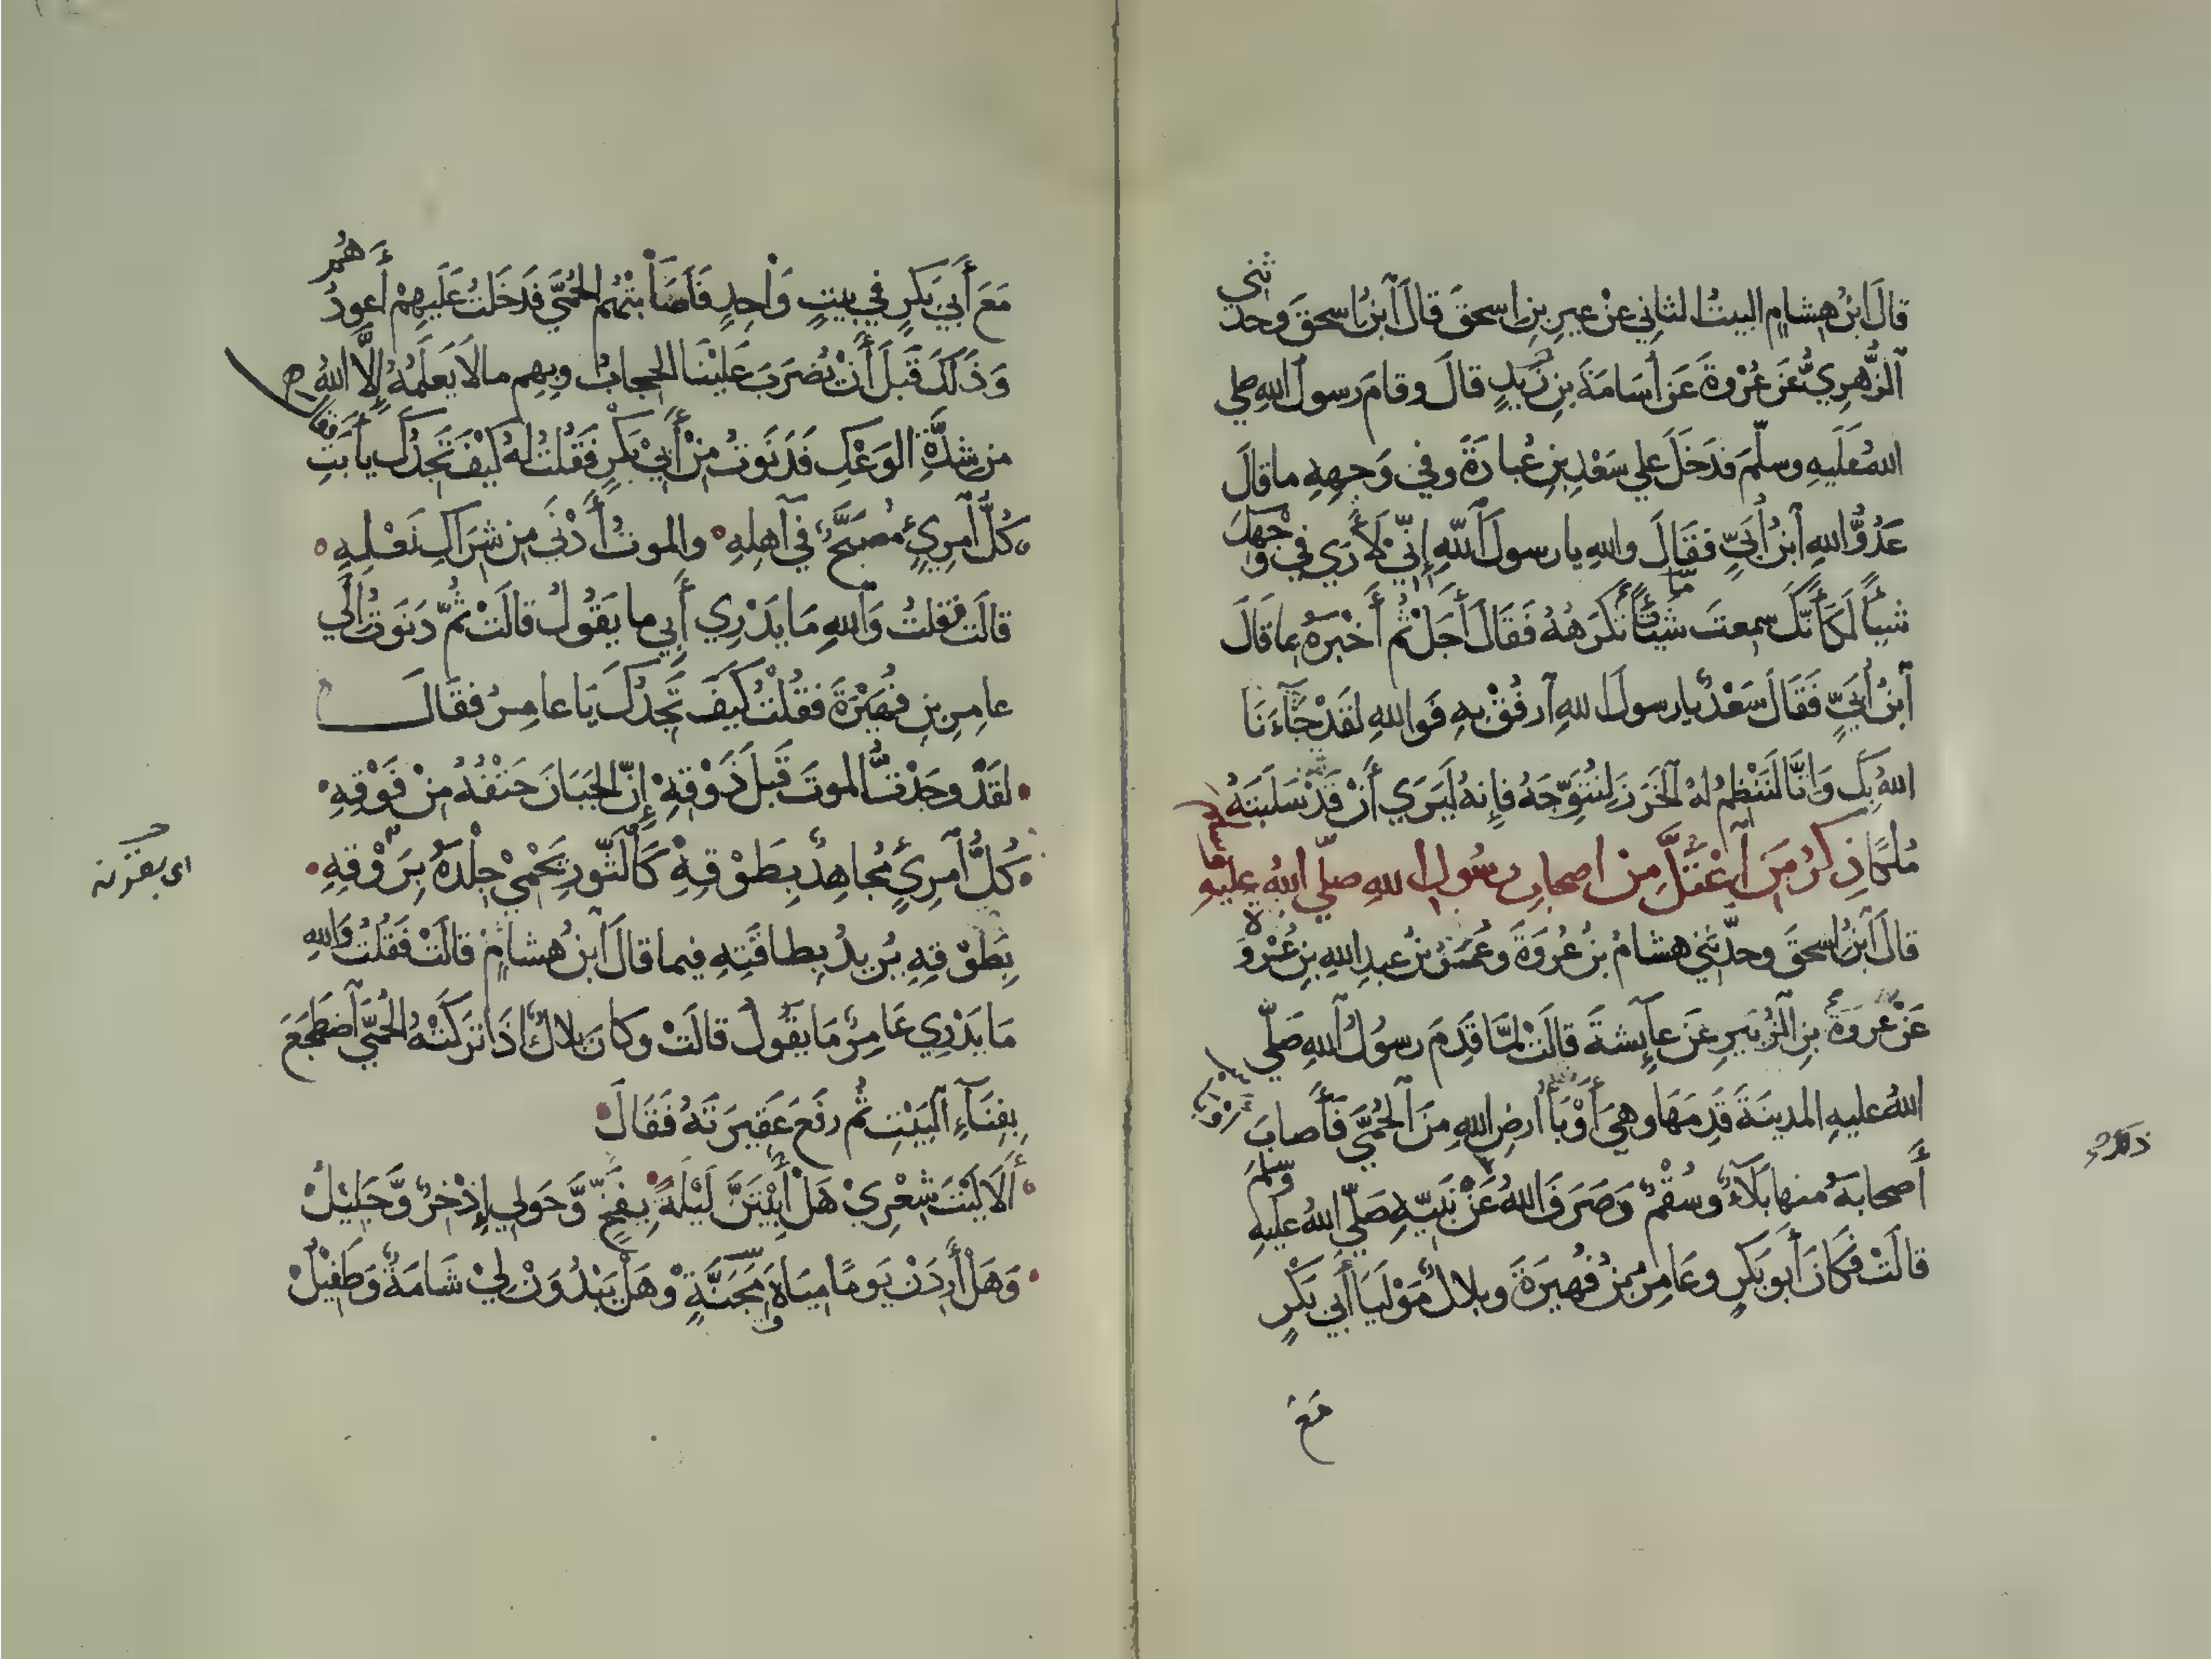 قالَ ابنُ هِشامٍ البيتُ الثاني عن غيرِ بنِ اسحقَ قالَ ابنُ اسحقَ وحدثني
الزُّهرِيُّ عَن عُرْوةَ عَن أُسَامَةَ بنِ زَيدٍ قالَ وقامَ رسولُ اللهِ صلي
اللهُ عَلَيهِ وسلَّمَ فدَخَلَ علي سَعْدِ بنِ عُبادَةَ وفي وَجهِهِ ما قالَ
عَدُوُّ اللهِ ابنُ أُبَيٍّ فقَالَ واللهِ يا رسولَ اللهِ إنّي لَأَرَي في وَجْهِكَ
شيئًا لَكَأَنَّكَ سمعتَ شيئًا تَكرَهُهُ فَقَالَ أَجَلْ ثُم أَخْبَرَهُ بما قالَ
ابنُ أُبَيٍّ فَقَالَ سَعْدٌ يا رسولَ اللهِ ارفُقْ بِهِ فَواللهِ لقَدْ جَآءَنَا
اللهُ بِكَ وَإنَّا لَنَنْظِمُ لهُ الخَرَزَ لِنُتَوِّجَهُ فإِنهُ لَيَرَي أَنْ قَدْ سَلَبتَهُ
مُلكًا ذِكرُ مَن اعْتَلَّ مِنْ اصحابِ رسُولِ اللهِ صلّي اللهُ عليهِ
قالَ ابنُ اسحقَ وحدّثني هشامُ بنُ عُروَةَ وعُمَرُ بنُ عبدِ اللهِ بنِ عُرْوَةَ
عَنْ عُروَةَ بنِ الزُّبَيرِ عَن عآئِشةَ قالَتْ لمَّا قَدِمَ رسُولُ اللهِ صَلّي
اللهُ عليهِ المدينَةَ قَدِمَهَا وهيَ أَوْبَأُ أرضِ اللهِ مِنَ الحُمَّي فَأَصابَ
أَصحابَهُ منها بَلَآءٌ وسُقْمٌ وَصَرَفَ اللهُ عَنْ نَبيّهِ صَلّي اللهُ عليهِ وسلّم
قالَتْ فَكَانَ أَبو بَكرٍ وعَامِرُ بنُ فُهيرَةَ وبلالٌ مَوْلَيَا أَبي بَكْرٍ
مَعَ
مَعَ أَبي بَكرٍ في بيتٍ وَاحِدٍ فَأَصَابَتْهُم الحُمَّي فَدخَلتُ عَلَيهِمْ أَعودُهُم
وَذَلَكَ قَبلَ أَنْ يُضرَبَ عَلَيْنَا الحجابُ وبِهِم مالا يَعلَمُهُ إلَّا اللهُ
من شدَّةِ الوَعْكِ فَدَنَوتُ مِنْ أَبي بَكرٍ فَقُلتُ لهُ كَيْفَ تَجِدُكَ يا أَبَتِ
كُلُّ امرِيءٍ مُصَبَّحٌ في اهلِهِ والموتُ أَدْنَى من شرَاكِ نَعْلِهِ
قالَت فقلتُ وَاللهِ مَا يَدْرِي أَبي ما يَقُولُ قالَتْ ثُمّ دَنَوتُ إلَي
عامِرِ بنِ فُهَيْرَةَ فقُلْتُ كَيفَ تَجِدُكَ يَا عامِرُ فقَالَ
لقَدْ وجَدْتُ الموتَ قَبلَ ذَوْقِهِ إنّ الجَبَانَ حَتْفُهُ مِنْ فَوْقِهِ
كُلُّ امرِيءٍ مُجاهِدٌ بِطَوْقِهِ كَالثَّورِ يَحْمِي جِلْدَهُ بِرَوْقِهِ
بِطَوْقِهِ يُريدُ بِطاقَتِهِ فيما قالَ ابنُ هشامٍ قالَتْ فَقُلتُ وَاللهِ
مَا يَدْرِي عَامِرٌ مَا يقُولُ قالَتْ وكانَ بلالٌ اذَا تركَتْهُ الحُمَّي اضطَجَعَ
بفِنَآءِ البَيْتِ ثُم رفَعَ عَقِيرَتَهُ فَقَالَ
أَلَا لَيْتَ شِعْرِي هَلْ أَبِيْتَنَّ لَيْلَةً بِفَخٍّ وَّحَولي إذْخرٌ وَّجَلِيْلُ
وَهَلْ أَرِدَنْ يَومًا مِيَاهَ مِجَنَّةٍ وهَلْ يَبْدُوَنْ لي شَامَةٌ وَطَفِيْلُ